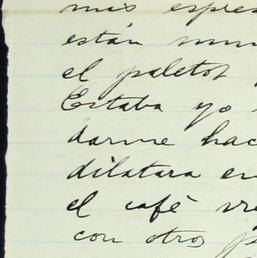 mis espre
están mu
el paletot
Estaba yo
darme hac
dilatara en
el café vre
con otros p